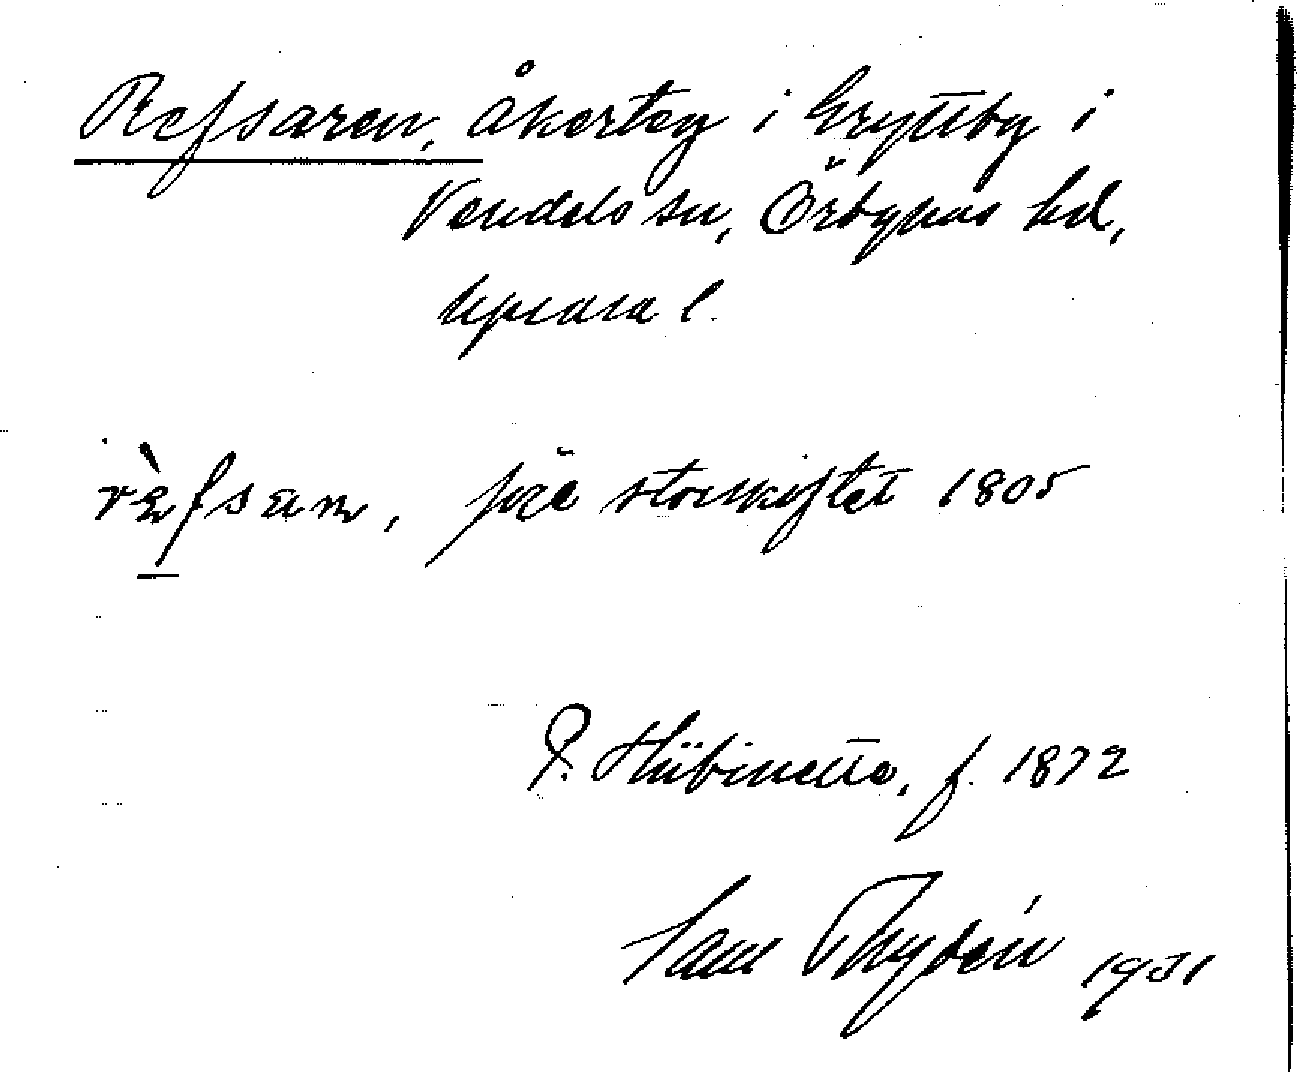 Refsaren, åkerteg i Gryttby i
Vendels sn, Örbyhus hd,
Upsala l.
rὲfsan, före storskiftet 1805
P. Hübinette, f. 1872
Sam Thydén 1931